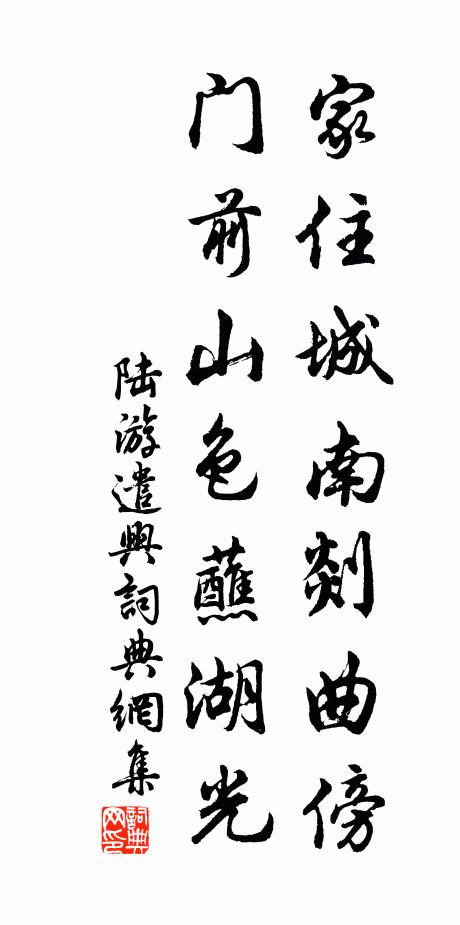 家住城南剡曲傍
门前山色蘸湖光
陆游遣興詞典網集
詞典网印